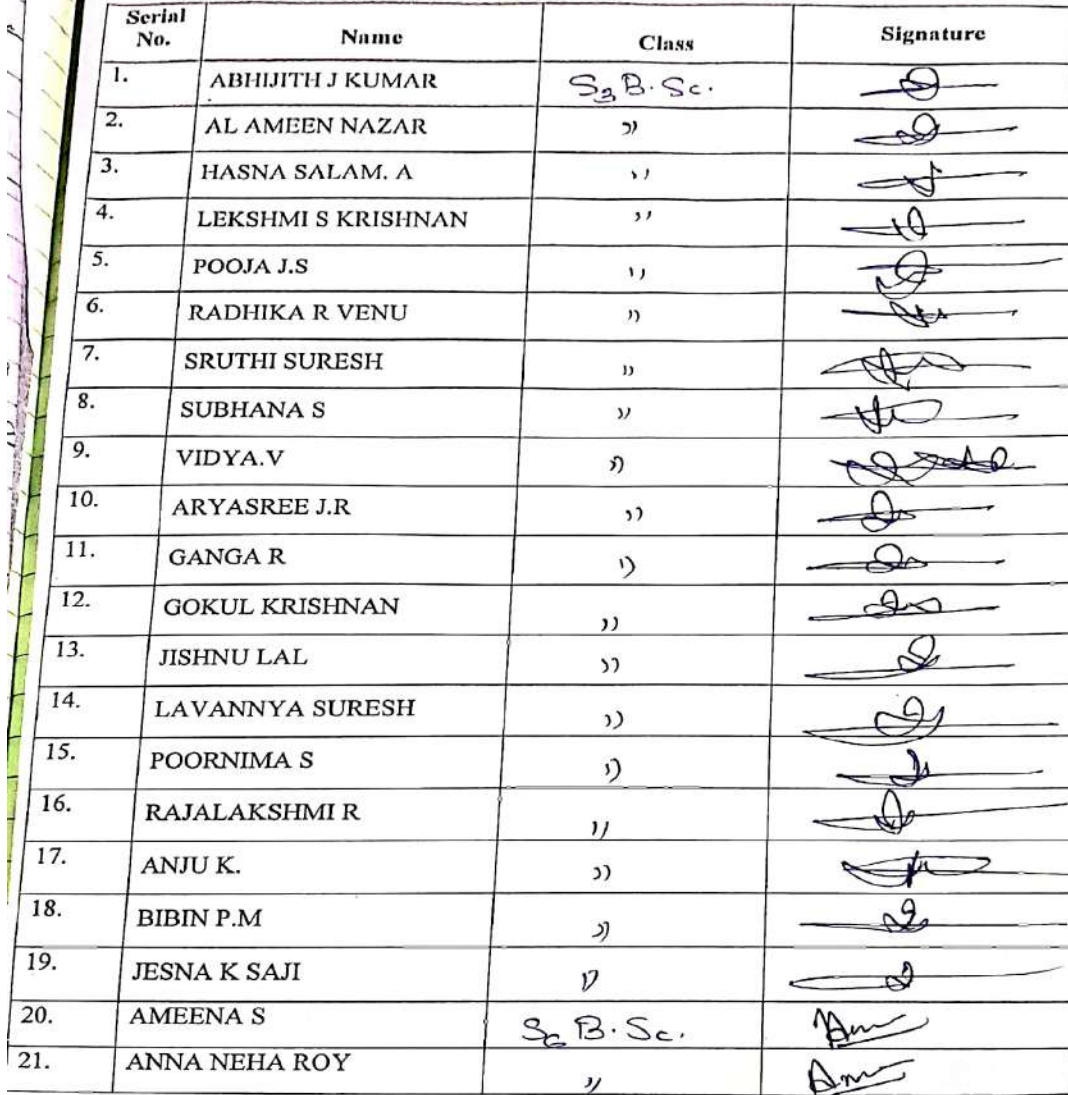 Serial No. Name Class Signature
1. ABHIJITH J KUMAR S3 B.Sc.
2. AL AMEEN NAZAR "
3. HASNA SALAM. A "
4. LEKSHMI S KRISHNAN "
5. POOJA J.S "
6. RADHIKA R VENU "
7. SRUTHI SURESH "
8. SUBHANA S "
9. VIDYA.V "
10. ARYASREE J.R "
11. GANGA R "
12. GOKUL KRISHNAN "
13. JISHNU LAL "
14. LAVANNYA SURESH "
15. POORNIMA S "
16. RAJALAKSHMI R "
17. ANJU K. "
18. BIBIN P.M "
19. JESNA K SAJI "
20. AMEENA S S6 B.Sc.
21. ANNA NEHA ROY "